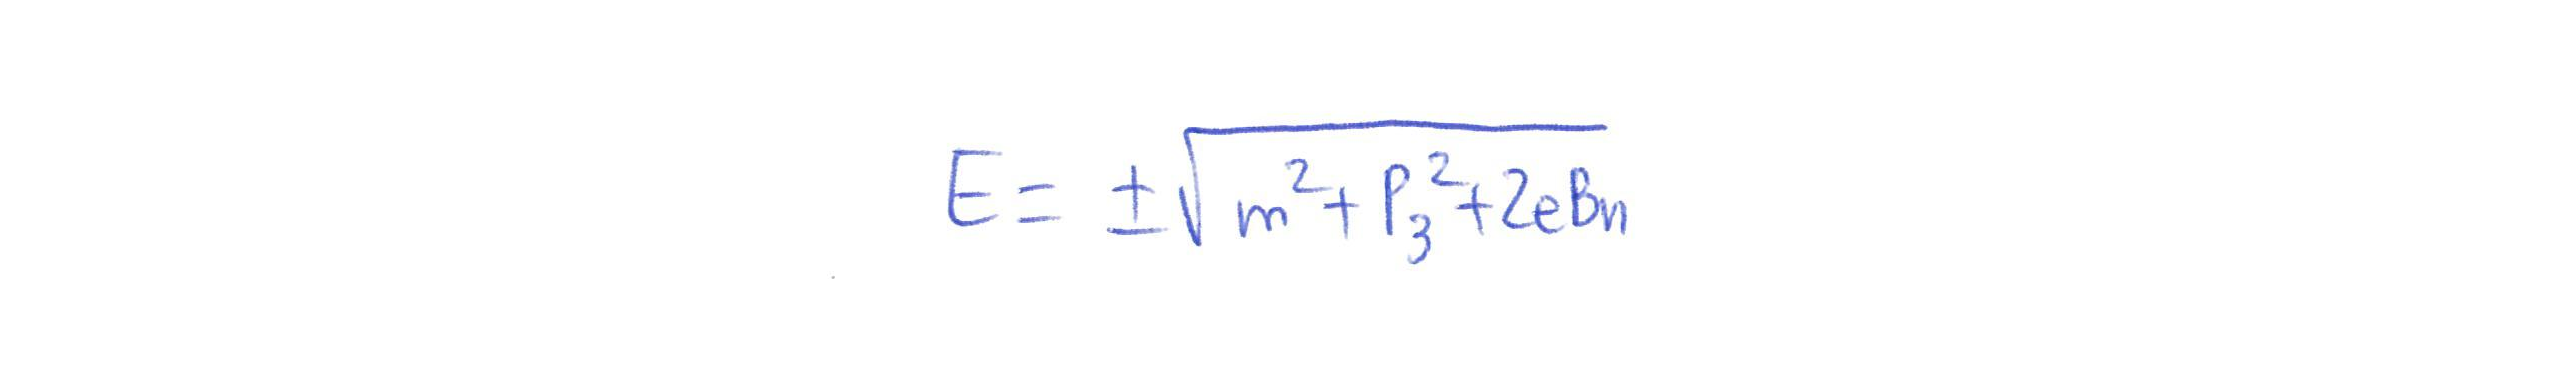 E = ±√(m² + P₃² + 2eBn)